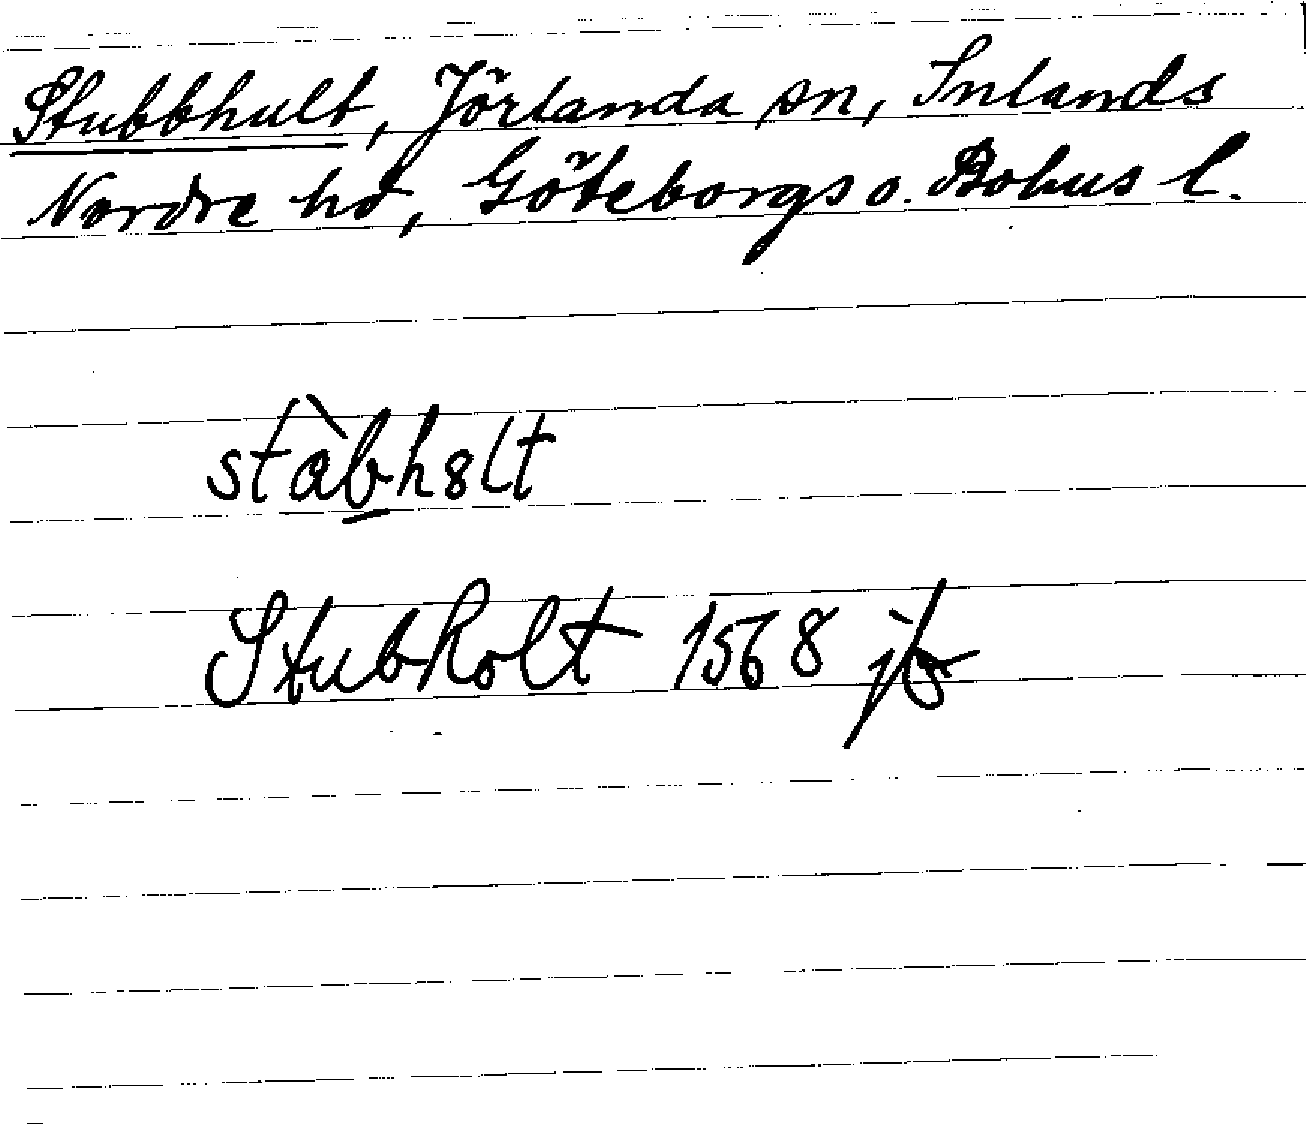 Stubbhult, Jörlanda sn, Inlands
Nordre hd, Göteborgs o. Bohus l.
stàb̲h8lt
Stubholt 1568 jb